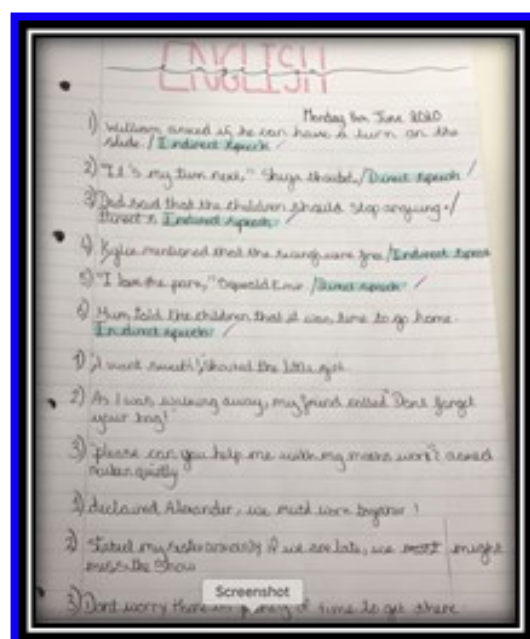 ENGLISH
Monday 8th June 2020
1) William asked if he can have a turn on the
slide. / Indirect speech
2) "It's my turn next," Shuya /Direct speech
3) Dad said that the children should stop arguing. /
Direct s Indirect speech
4) Kylie mentioned that the swings were free /Indirect speech
5) "I love the park," /Direct speech
6) Mum told the children that it was time to go home.
Indirect speech
1) "I want sweets!" shouted the little girl
2) As I was walking away, my friend called "Dont forget
your bag!"
3) "please can you help me with my maths work? asked
quietly
1) declared Alexander, we must work together!
2) Stated my sister if we are late, we might
miss the show
3) Dont worry there is plenty of time to get there
Screenshot